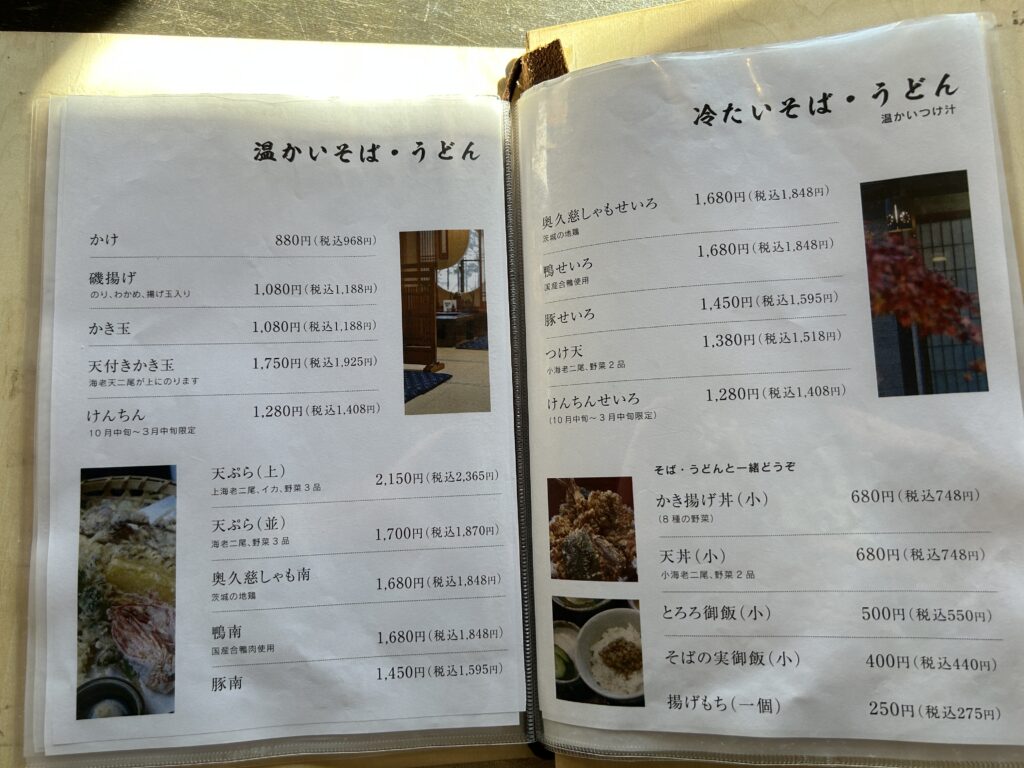 温かいそば・うどん
かけ 880円(税込968円)
磯揚げ 1,080円(税込1,188円)
のり、わかめ、揚げ玉入り
かき玉 1,080円(税込1,188円)
天付きかき玉 1,750円(税込1,925円)
海老天二尾が上にのります
けんちん 1,280円(税込1,408円)
10月中旬～3月中旬限定
天ぷら(上) 2,150円(税込2,365円)
上海老二尾、イカ、野菜3品
天ぷら(並) 1,700円(税込1,870円)
海老二尾、野菜3品
奥久慈しゃも南 1,680円(税込1,848円)
茨城の地鶏
鴨南 1,680円(税込1,848円)
国産合鴨肉使用
豚南 1,450円(税込1,595円)
冷たいそば・うどん
温かいつけ汁
奥久慈しゃもせいろ 1,680円(税込1,848円)
茨城の地鶏
鴨せいろ 1,680円(税込1,848円)
国産合鴨使用
豚せいろ 1,450円(税込1,595円)
つけ天 1,380円(税込1,518円)
小海老二尾、野菜2品
けんちんせいろ 1,280円(税込1,408円)
(10月中旬～3月中旬限定)
そば・うどんと一緒どうぞ
かき揚げ丼(小) 680円(税込748円)
(8種の野菜)
天丼(小) 680円(税込748円)
小海老二尾、野菜2品
とろろ御飯(小) 500円(税込550円)
そばの実御飯(小) 400円(税込440円)
揚げもち(一個) 250円(税込275円)